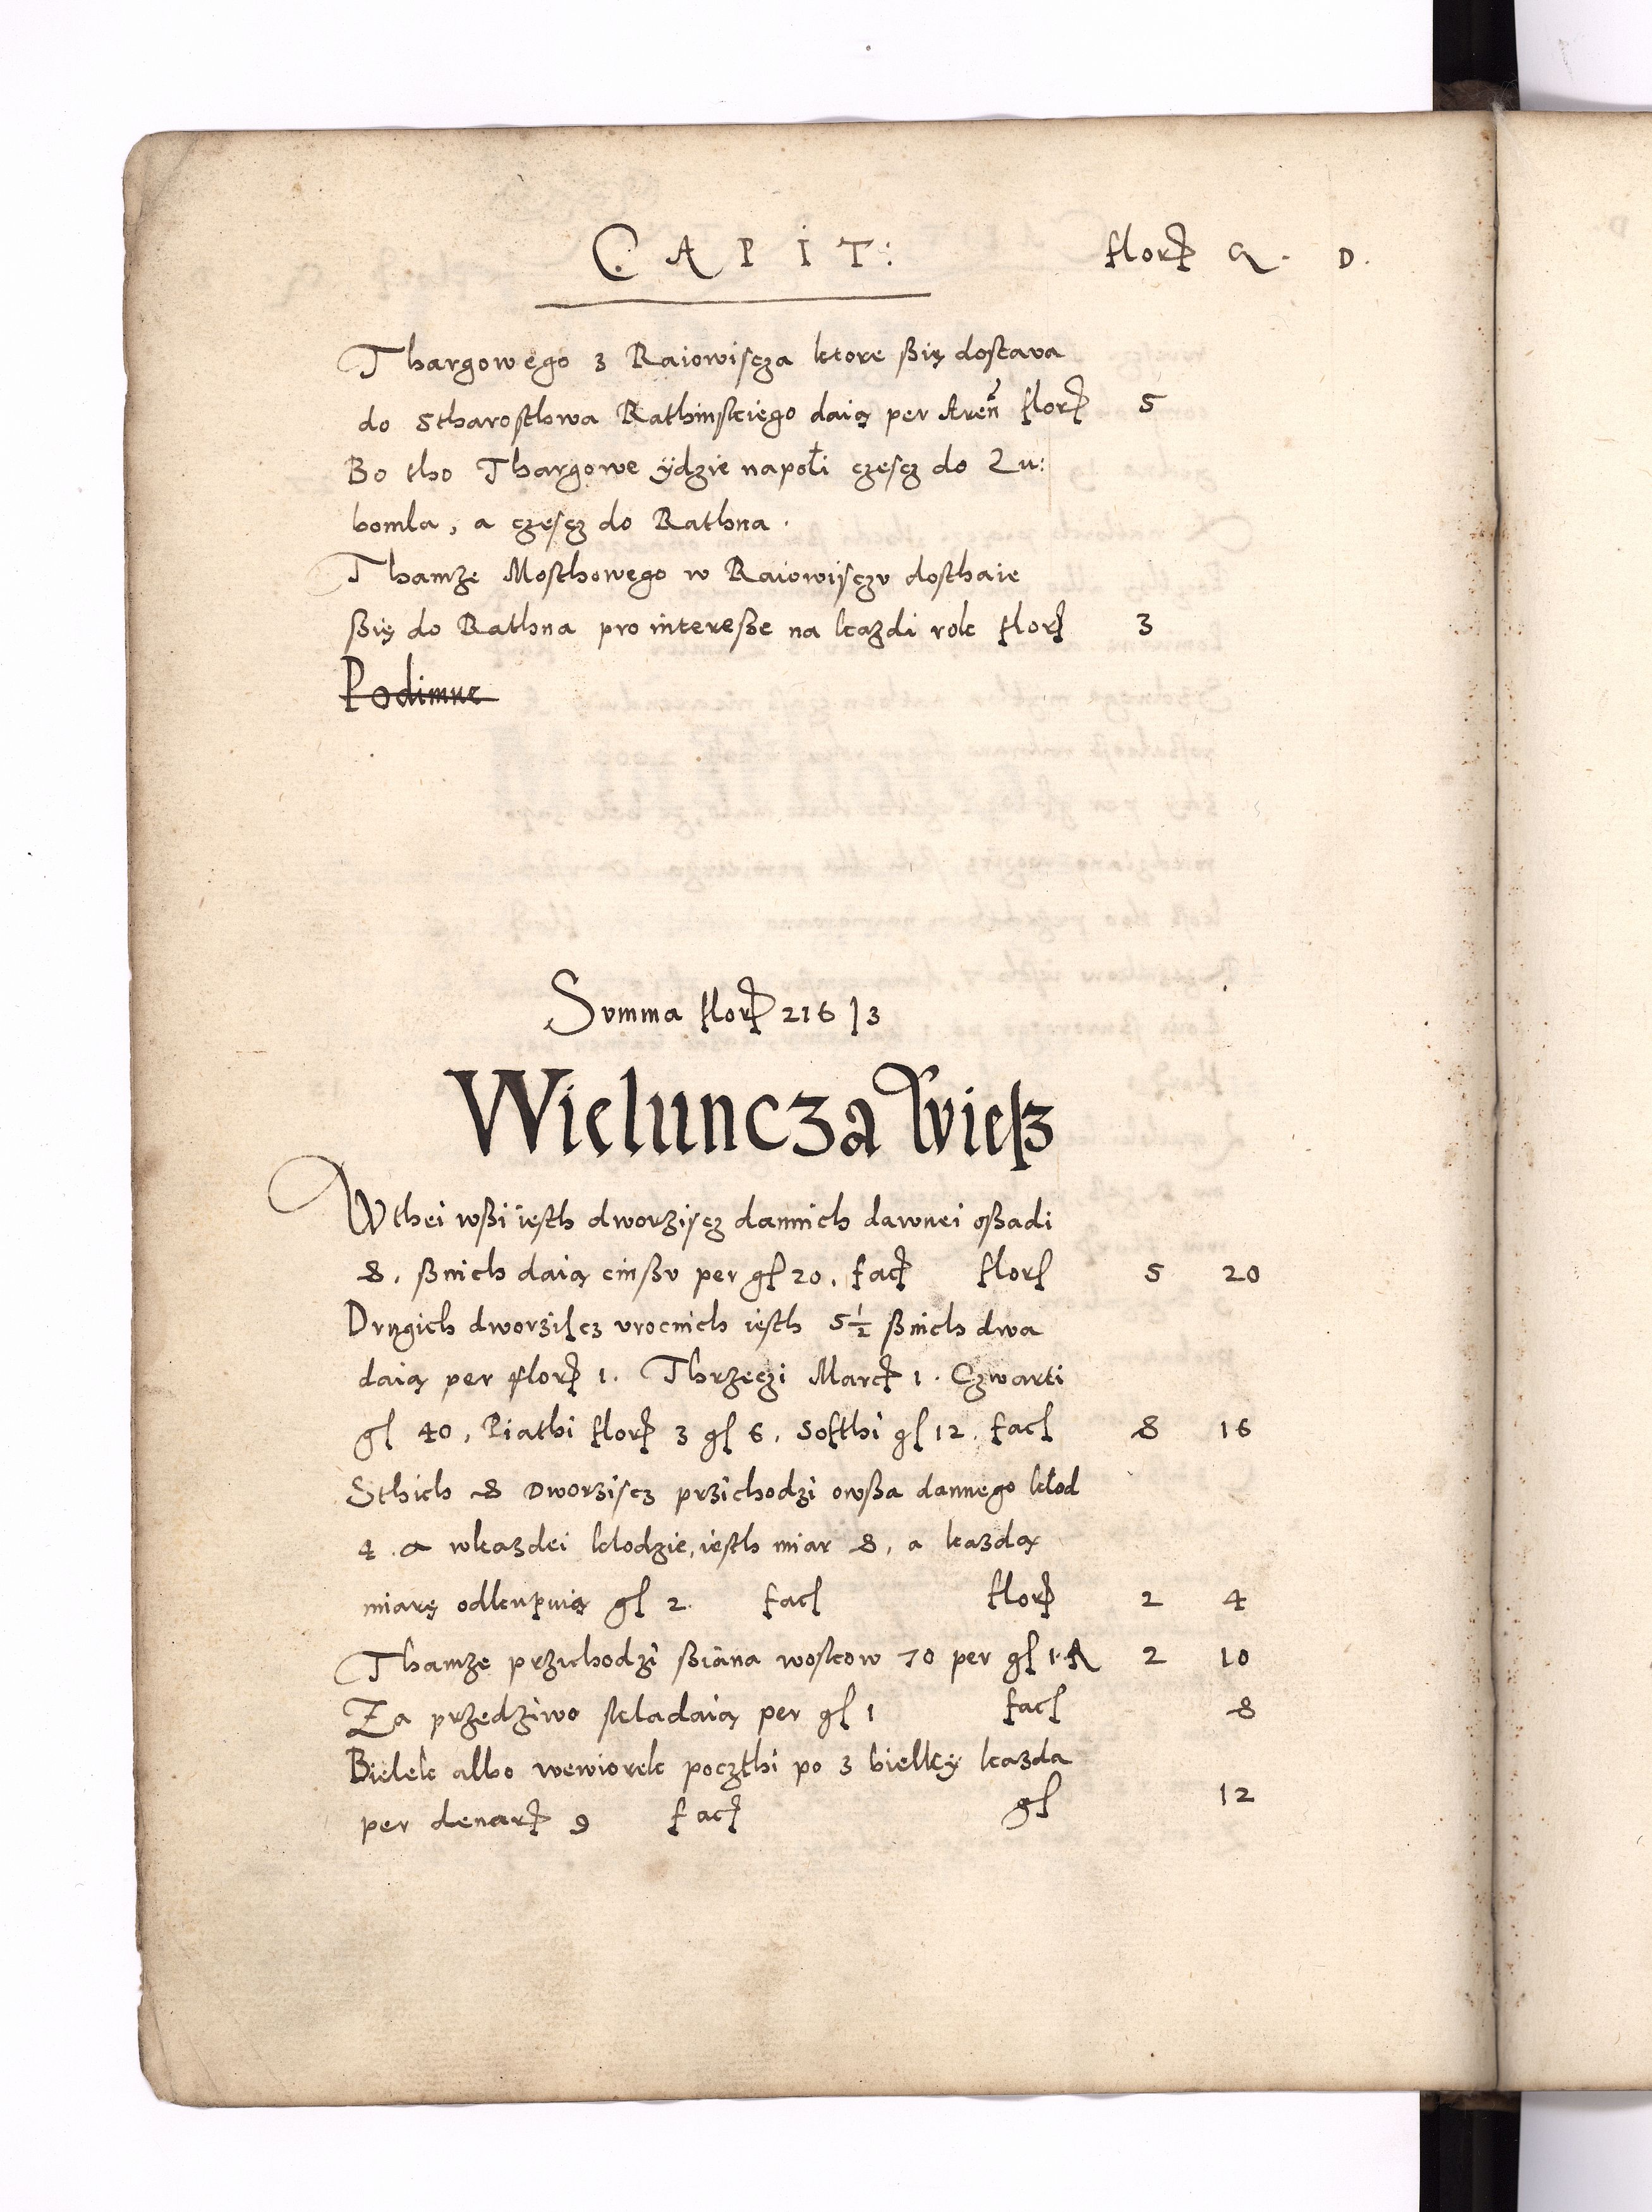 CAPIT: flor G. D.
Thargowego z Raiowiscza ktore ßię dostava
do Stharosthwa Rathinskiego daią per Aren flor 5
Bo tho Thargowe ÿdzie napołi częscz do Lu:
bomla, a częscz do Rathna.
Thamze Mosthowego w Raiowisczv dosthaie
ßię do Rathna pro intereße na kazdi rok flor 3
Podimne
Svmma flor 216 | 3
Wieluncza Wieß
W thei wßi iesth dworziscz dannich dawnei oßadi
8, ßnich daią cinßv per gl 20, fact flor 5 20
Drugich dworziscz vrocnich iesth 5½ ßnich dwa
daią per flor 1. Thrzeczi Marck 1. Czwarti
gl 40, Piathi flor 3 gl 6, Sosthi gl 12, fact 8 16
Sthich 8 Dworziscz przichodzi owßa dannego kłod
4. a wkazdei kłodzie, iesth miar 8, a kazdą
miarę odkupuią gl 2. fact flor 2 4
Thamze przichodzi ßiana woskow 70 per gl 1. A 2 10
Za przedziwo składaią per gl 1 fact 8
Bielek albo wewiorek poczthi po 3 bielky kazda
per denar 9 fact gl 12